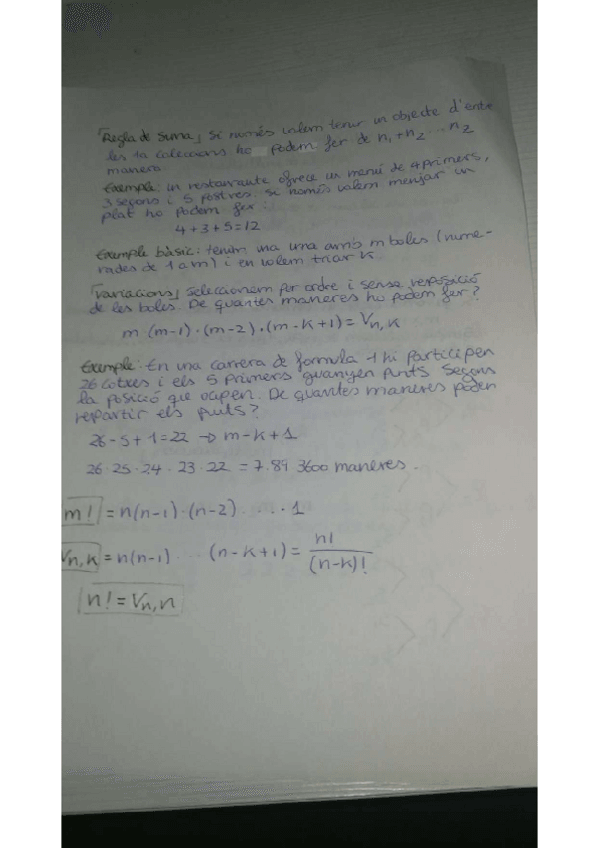 "Regla de suma" si només volem tenir un objecte d'entre
les ta coleccions ho podem fer de n₁+n₂ ... n₂
manera
Exemple: un restaurante ofrece un menú de 4 primers,
3 segons i 5 postres. Si només volem menjar un
plat ho podem fer:
4+3+5=12
Exemple bàsic: tenim una urna amb m boles (nume-
rades de 1 a m) i en volem triar k.
"Variacions" seleccionem per ordre i sense reposició
de les boles. De quantes maneres ho podem fer?
m·(m-1)·(m-2)·(m-k+1)=Vn,k
Exemple: En una carrera de formula 1 hi participen
26 cotxes i els 5 primers guanyen punts segons
la posició que ocupen. De quantes maneres poden
repartir els punts?
26-5+1=22 → m-k+1
26·25·24·23·22 = 7.89 3600 maneres.
m! = n(n-1)·(n-2)·...·1
Vn,k = n(n-1)... (n-k+1)= n!/(n-k)!
n! = Vn,n